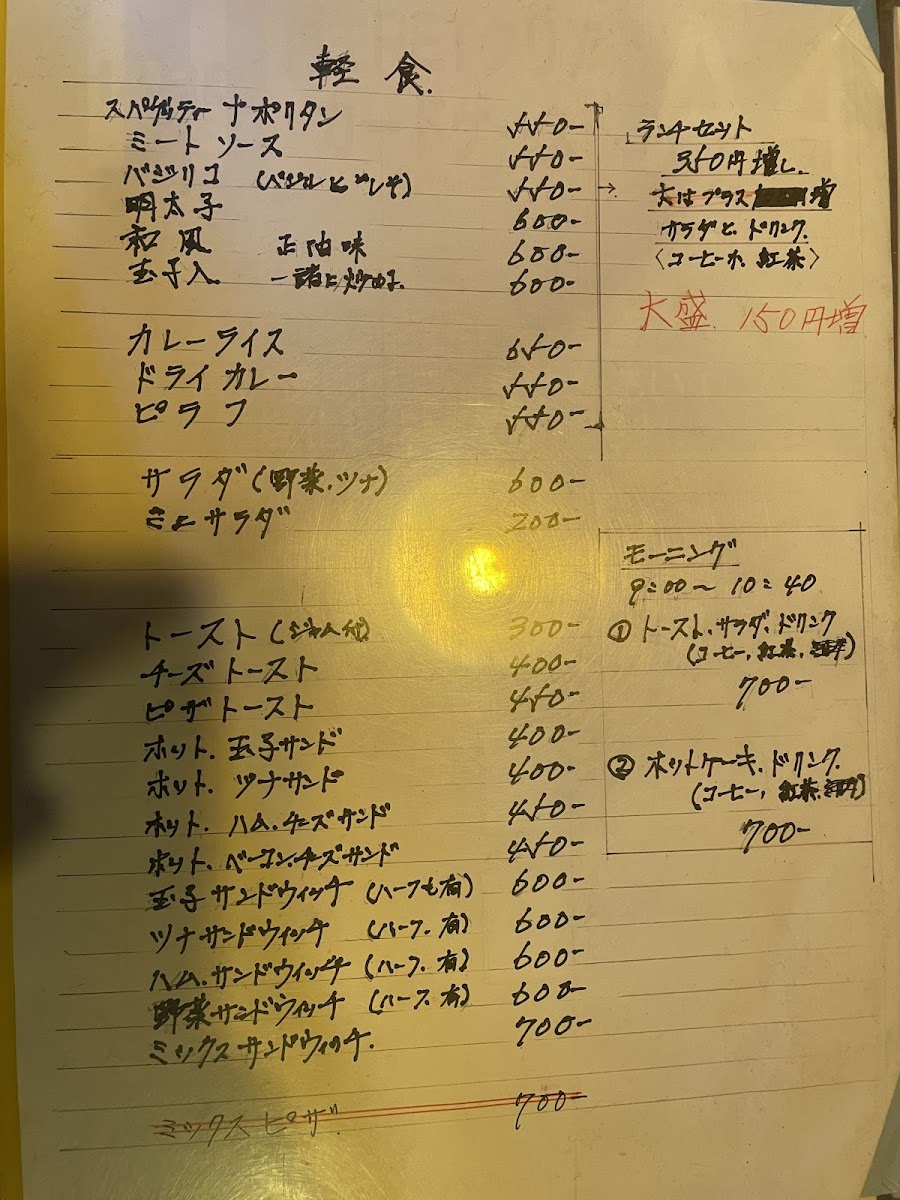 軽食.
スパゲッティー ナポリタン 550-
ミートソース 550-
バジリコ (バジルと シレそ) 550-
明太子 600-
和風 正油味 600-
玉子入 一諸に炒める. 600-
カレーライス 650-
ドライカレー 550-
ピラフ 550-
サラダ(野菜.ツナ) 600-
ミニサラダ 200-
トースト(ジャム付) 300-
チーズトースト 400-
ピザトースト 450-
ホット.玉子サンド 400-
ホット.ツナサンド 400-
ホット.ハム.チーズサンド 450-
ホット.ベーコン.チーズサンド 450-
玉子サンドウィッチ (ハーフも有) 600-
ツナサンドウィッチ (ハーフ.有) 600-
ハム.サンドウィッチ (ハーフ.有) 600-
野菜サンドウィッチ (ハーフ.有) 600-
ミックスサンドウィッチ. 700-
ミックスピザ. 700-
ランチセット
350円増し.
大はプラス 増
サラダと.ドリンク.
〈コーヒーか.紅茶〉
大盛.150円増
モーニング
9:00〜10:40
① トースト.サラダ.ドリンク
(コーヒー,紅茶,)
700-
② ホットケーキ.ドリンク.
(コーヒー,紅茶.)
700-